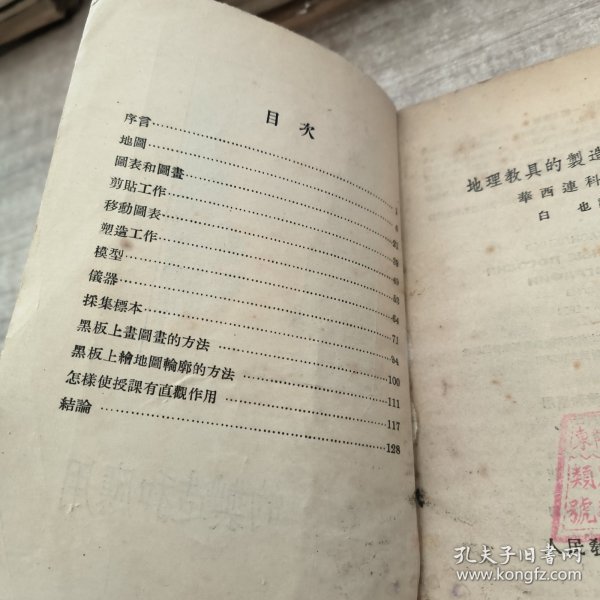 目次
序言……1
地圖……6
圖表和圖畫……
剪貼工作……
移動圖表……
塑造工作……53
模型……64
儀器……71
採集標本……94
黑板上畫圖畫的方法……100
黑板上繪地圖輪廓的方法……111
怎樣使授課有直觀作用……117
結論……128
地理教具的製造
華西連科
白也
類
號
人民教
孔夫子旧书网
www.kongfz.com